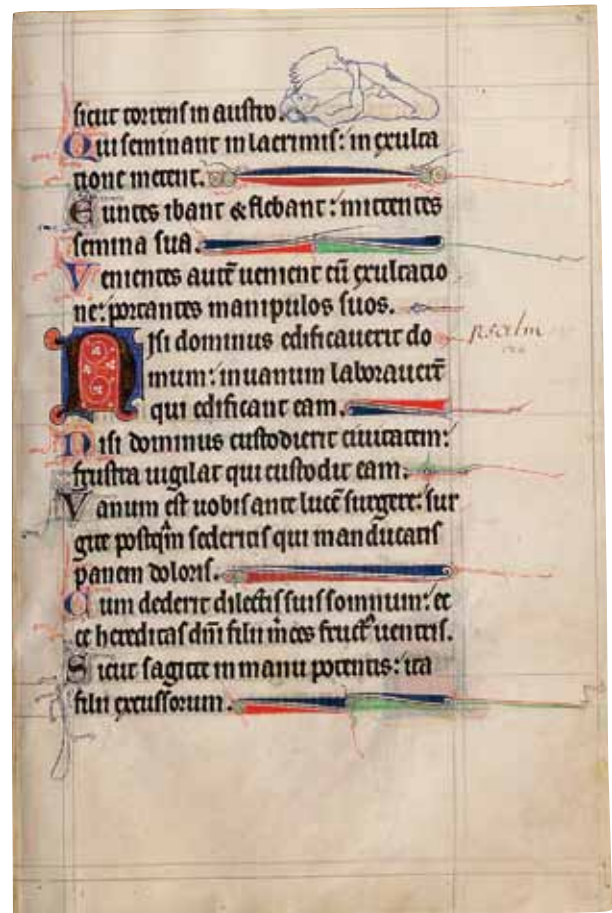 sicut torrens in austro.
Qui seminant in lacrimis: in exulta
tione metent.
Euntes ibant & flebant: mittentes
semina sua.
Venientes autē uenient cū exultatio
ne: portantes manipulos suos.
Nisi dominus edificauerit do
mum: inuanum laborauerūt
qui edificant eam.
Nisi dominus custodierit ciuitatem:
frustra uigilat qui custodit eam.
Vanum est uobis ante lucē surgere: sur
gite postq̄m sederitis qui manducatis
panem doloris.
Cum dederit dilectis suis somnum: ec
ce hereditas dn̄i filii m̄ces fruct᾽ uentris.
Sicut sagitte in manu potentis: ita
filii excussorum.
psalm